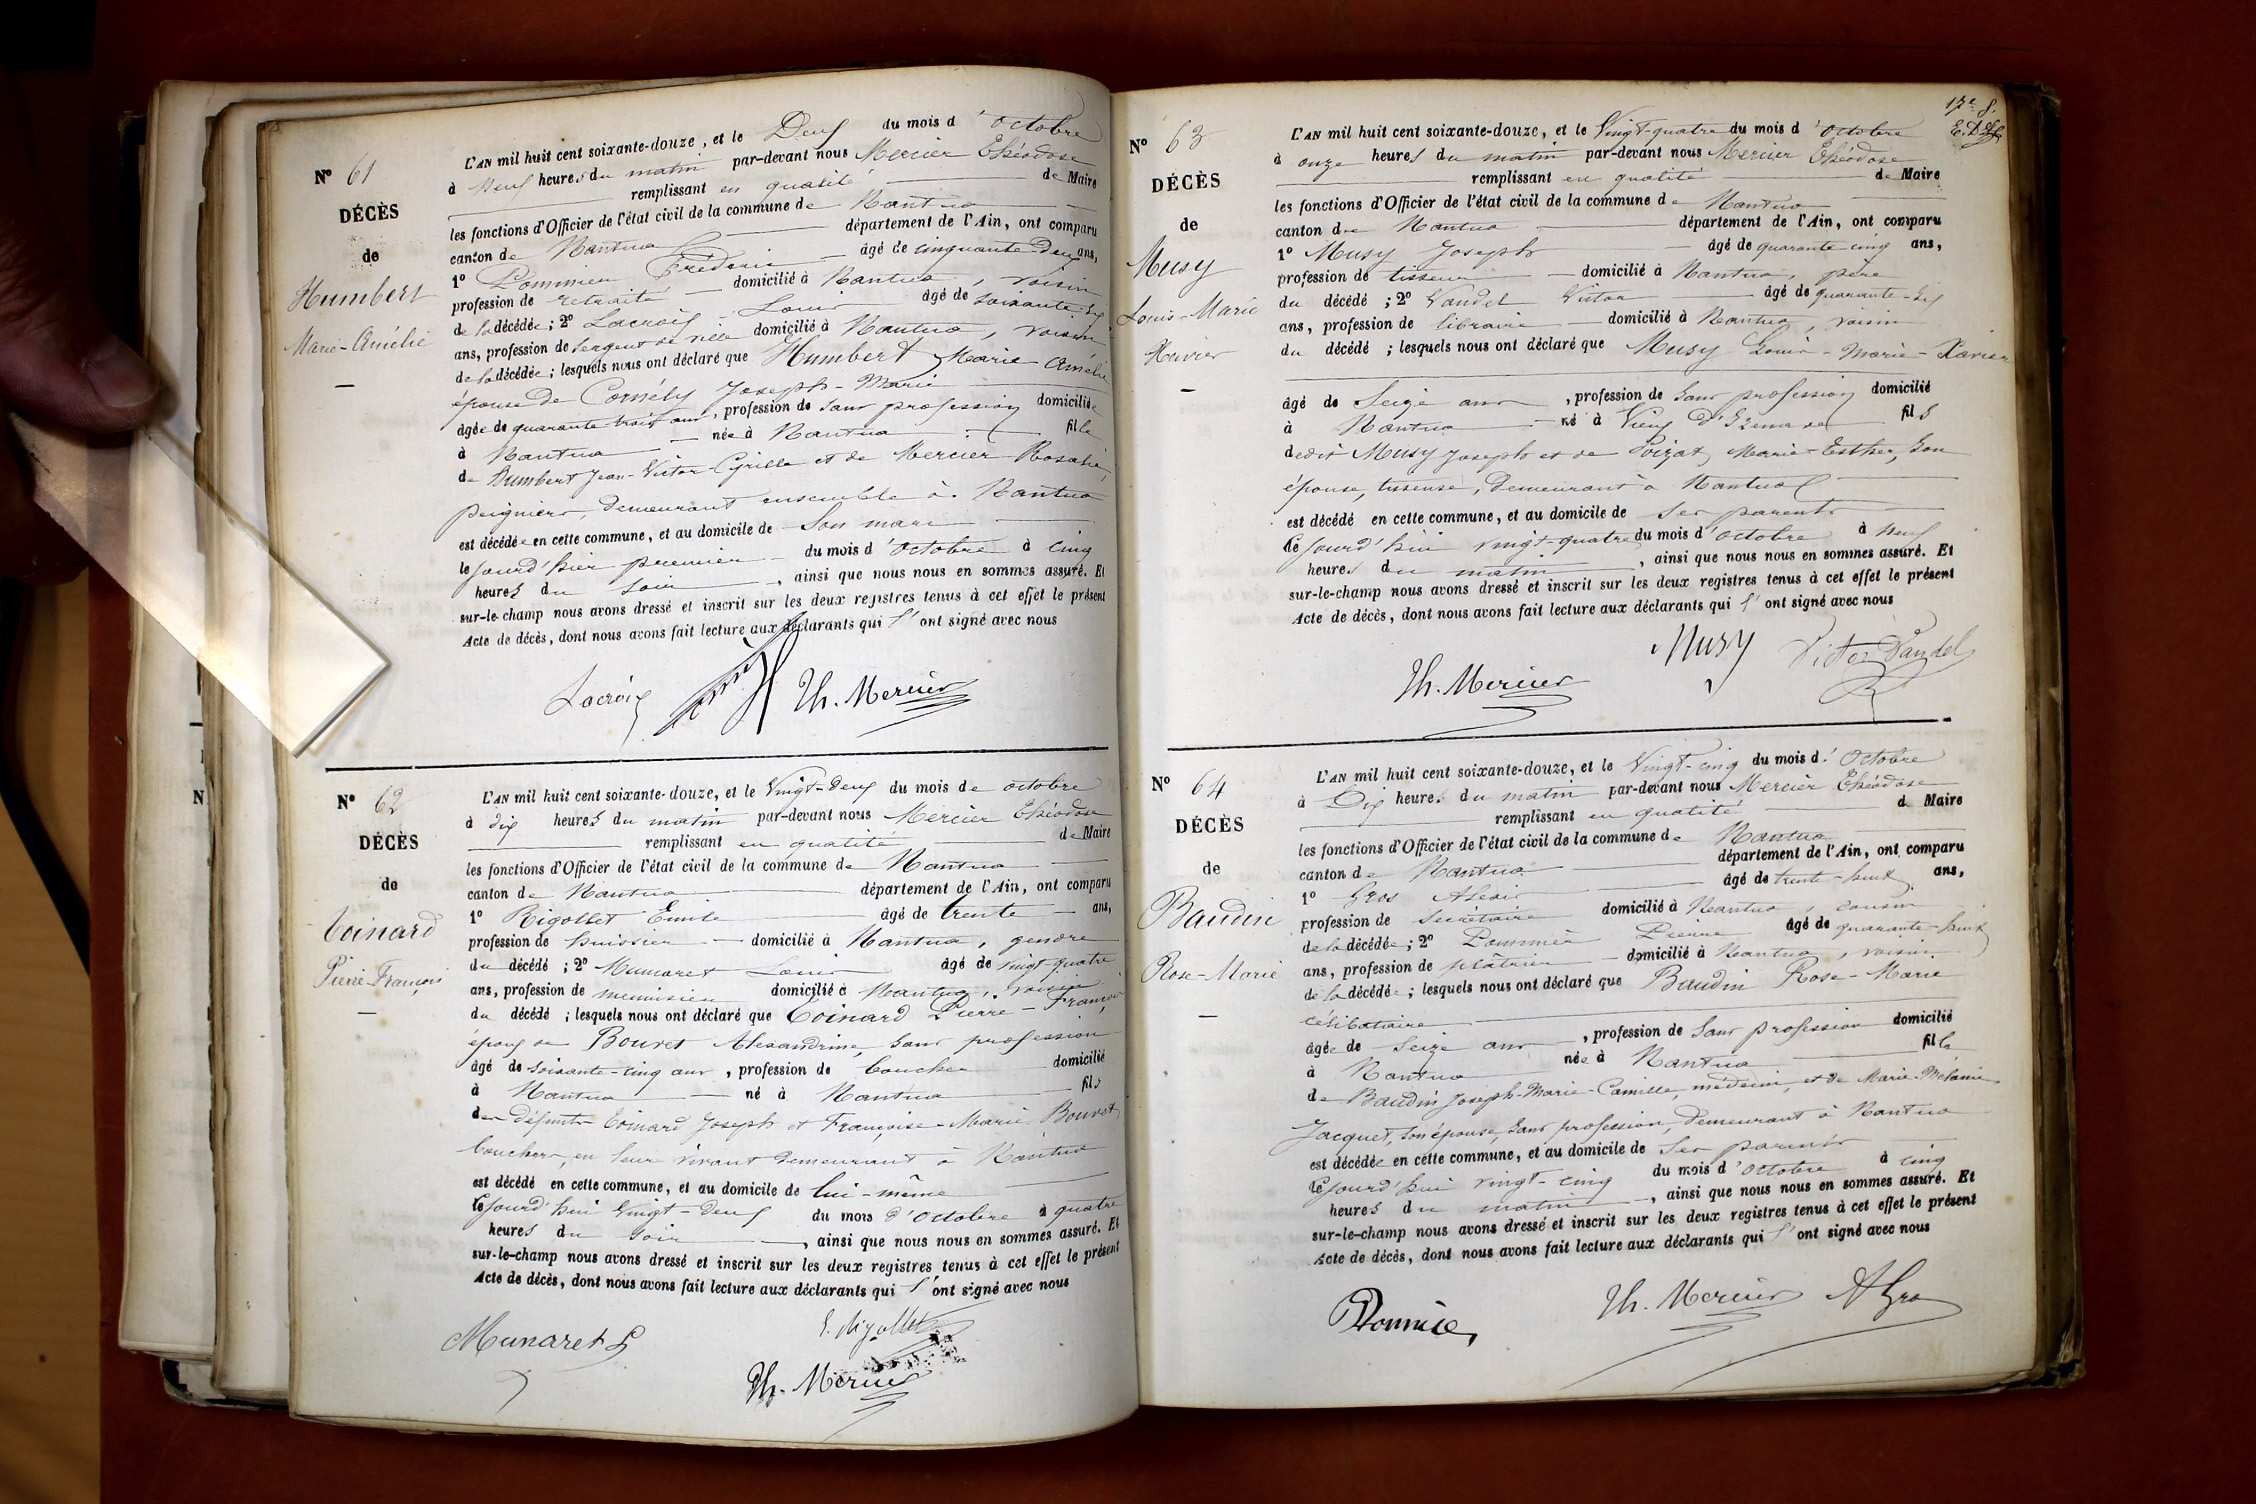 N° 61
DÉCÈS
de
Humbert
Marie-Amélie
L'AN mil huit cent soixante-douze, et le Deux du mois d'octobre
à Neuf heures du matin par-devant nous Mercier Théodose
remplissant en qualité de Maire
les fonctions d'Officier de l'état civil de la commune de Nantua
canton de Nantua département de l'Ain, ont comparu
1° Frédéric âgé de cinquante deux ans,
profession de retraité domicilié à Nantua, voisin
de la décédée; 2° Lacroix Louis âgé de soixante-six
ans, profession de sergent de ville domicilié à Nantua, voisin
de la décédée; lesquels nous ont déclaré que Humbert Marie Amélie
épouse de Cornély Joseph-Marie
âgée de quarante trois ans, profession de sans profession domiciliée
à Nantua née à Nantua fille
de Humbert Jean-Victor-Cyrille et de Mercier Rosalie,
peigniers, demeurant ensemble à Nantua
est décédée en cette commune, et au domicile de Son mari
le jourd'hier premier du mois d'octobre à cinq
heures du soir, ainsi que nous nous en sommes assuré. Et
sur-le-champ nous avons dressé et inscrit sur les deux registres tenus à cet effet le présent
Acte de décès, dont nous avons fait lecture aux déclarants qui l'ont signé avec nous
Lacroix Th. Mercier
N° 62
DÉCÈS
de
Toinard
Pierre-François
L'AN mil huit cent soixante-douze, et le Vingt-deux du mois de octobre
à dix heures du matin par-devant nous Mercier Théodose
remplissant en qualité de Maire
les fonctions d'Officier de l'état civil de la commune de Nantua
canton de Nantua département de l'Ain, ont comparu
1° Rigollet Emile âgé de trente ans,
profession de huissier domicilié à Nantua, gendre
du décédé; 2° Munaret Louis âgé de vingt-quatre
ans, profession de menuisier domicilié à Nantua, voisin
du décédé; lesquels nous ont déclaré que Toinard Pierre-François
époux de Bouvet Alexandrine, sans profession
âgé de soixante-cinq ans, profession de boucher domicilié
à Nantua né à Nantua fils
des défunts Toinard Joseph et Françoise-Marie Bouvet
bouchers, en leur vivant demeurant à Nantua
est décédé en cette commune, et au domicile de lui-même
le jourd'hui vingt-deux du mois d'octobre à quatre
heures du soir, ainsi que nous nous en sommes assuré. Et
sur-le-champ nous avons dressé et inscrit sur les deux registres tenus à cet effet le présent
Acte de décès, dont nous avons fait lecture aux déclarants qui l'ont signé avec nous
Munaret L E. Rigollet
Th. Mercier
N° 63
DÉCÈS
de
Musy
Louis-Marie
Xavier
L'AN mil huit cent soixante-douze, et le Vingt-quatre du mois d'octobre
à onze heures du matin par-devant nous Mercier Théodose
remplissant en qualité de Maire
les fonctions d'Officier de l'état civil de la commune de Nantua
canton de Nantua département de l'Ain, ont comparu
1° Musy Joseph âgé de quarante cinq ans,
profession de tisseur domicilié à Nantua, père
du décédé; 2° Vandel Victor âgé de quarante-six
ans, profession de libraire domicilié à Nantua, voisin
du décédé; lesquels nous ont déclaré que Musy Louis-Marie-Xavier
âgé de Seize ans, profession de sans profession domicilié
à Nantua né à Vieux d'Izenave fils
dedit Musy Joseph et de Poizat Marie-Esther, son
épouse, tisseuse, demeurant à Nantua
est décédé en cette commune, et au domicile de ses parents
le jourd'hui vingt-quatre du mois d'octobre à neuf
heures du matin, ainsi que nous nous en sommes assuré. Et
sur-le-champ nous avons dressé et inscrit sur les deux registres tenus à cet effet le présent
Acte de décès, dont nous avons fait lecture aux déclarants qui l'ont signé avec nous
Th. Mercier Musy Victor Vandel
N° 64
DÉCÈS
de
Baudin
Rose-Marie
L'AN mil huit cent soixante-douze, et le Vingt-cinq du mois d'Octobre
à Dix heures du matin par-devant nous Mercier Théodose
remplissant en qualité de Maire
les fonctions d'Officier de l'état civil de la commune de Nantua
canton de Nantua département de l'Ain, ont comparu
1° Gros Alexis âgé de trente-huit ans,
profession de Secrétaire domicilié à Nantua, cousin
de la décédée; 2° Pommier Pierre âgé de quarante-huit
ans, profession de plâtrier domicilié à Nantua, voisin
de la décédée; lesquels nous ont déclaré que Baudin Rose-Marie
célibataire
âgée de Seize ans, profession de sans profession domicilié
à Nantua née à Nantua fille
de Baudin Joseph-Marie-Camille, médecin, et de Marie-Mélanie
Jacquet, son épouse, sans profession, demeurant à Nantua
est décédée en cette commune, et au domicile de ses parents
le jourd'hui vingt-cinq du mois d'octobre à cinq
heures du matin, ainsi que nous nous en sommes assuré. Et
sur-le-champ nous avons dressé et inscrit sur les deux registres tenus à cet effet le présent
Acte de décès, dont nous avons fait lecture aux déclarants qui l'ont signé avec nous
Th. Mercier A Gros